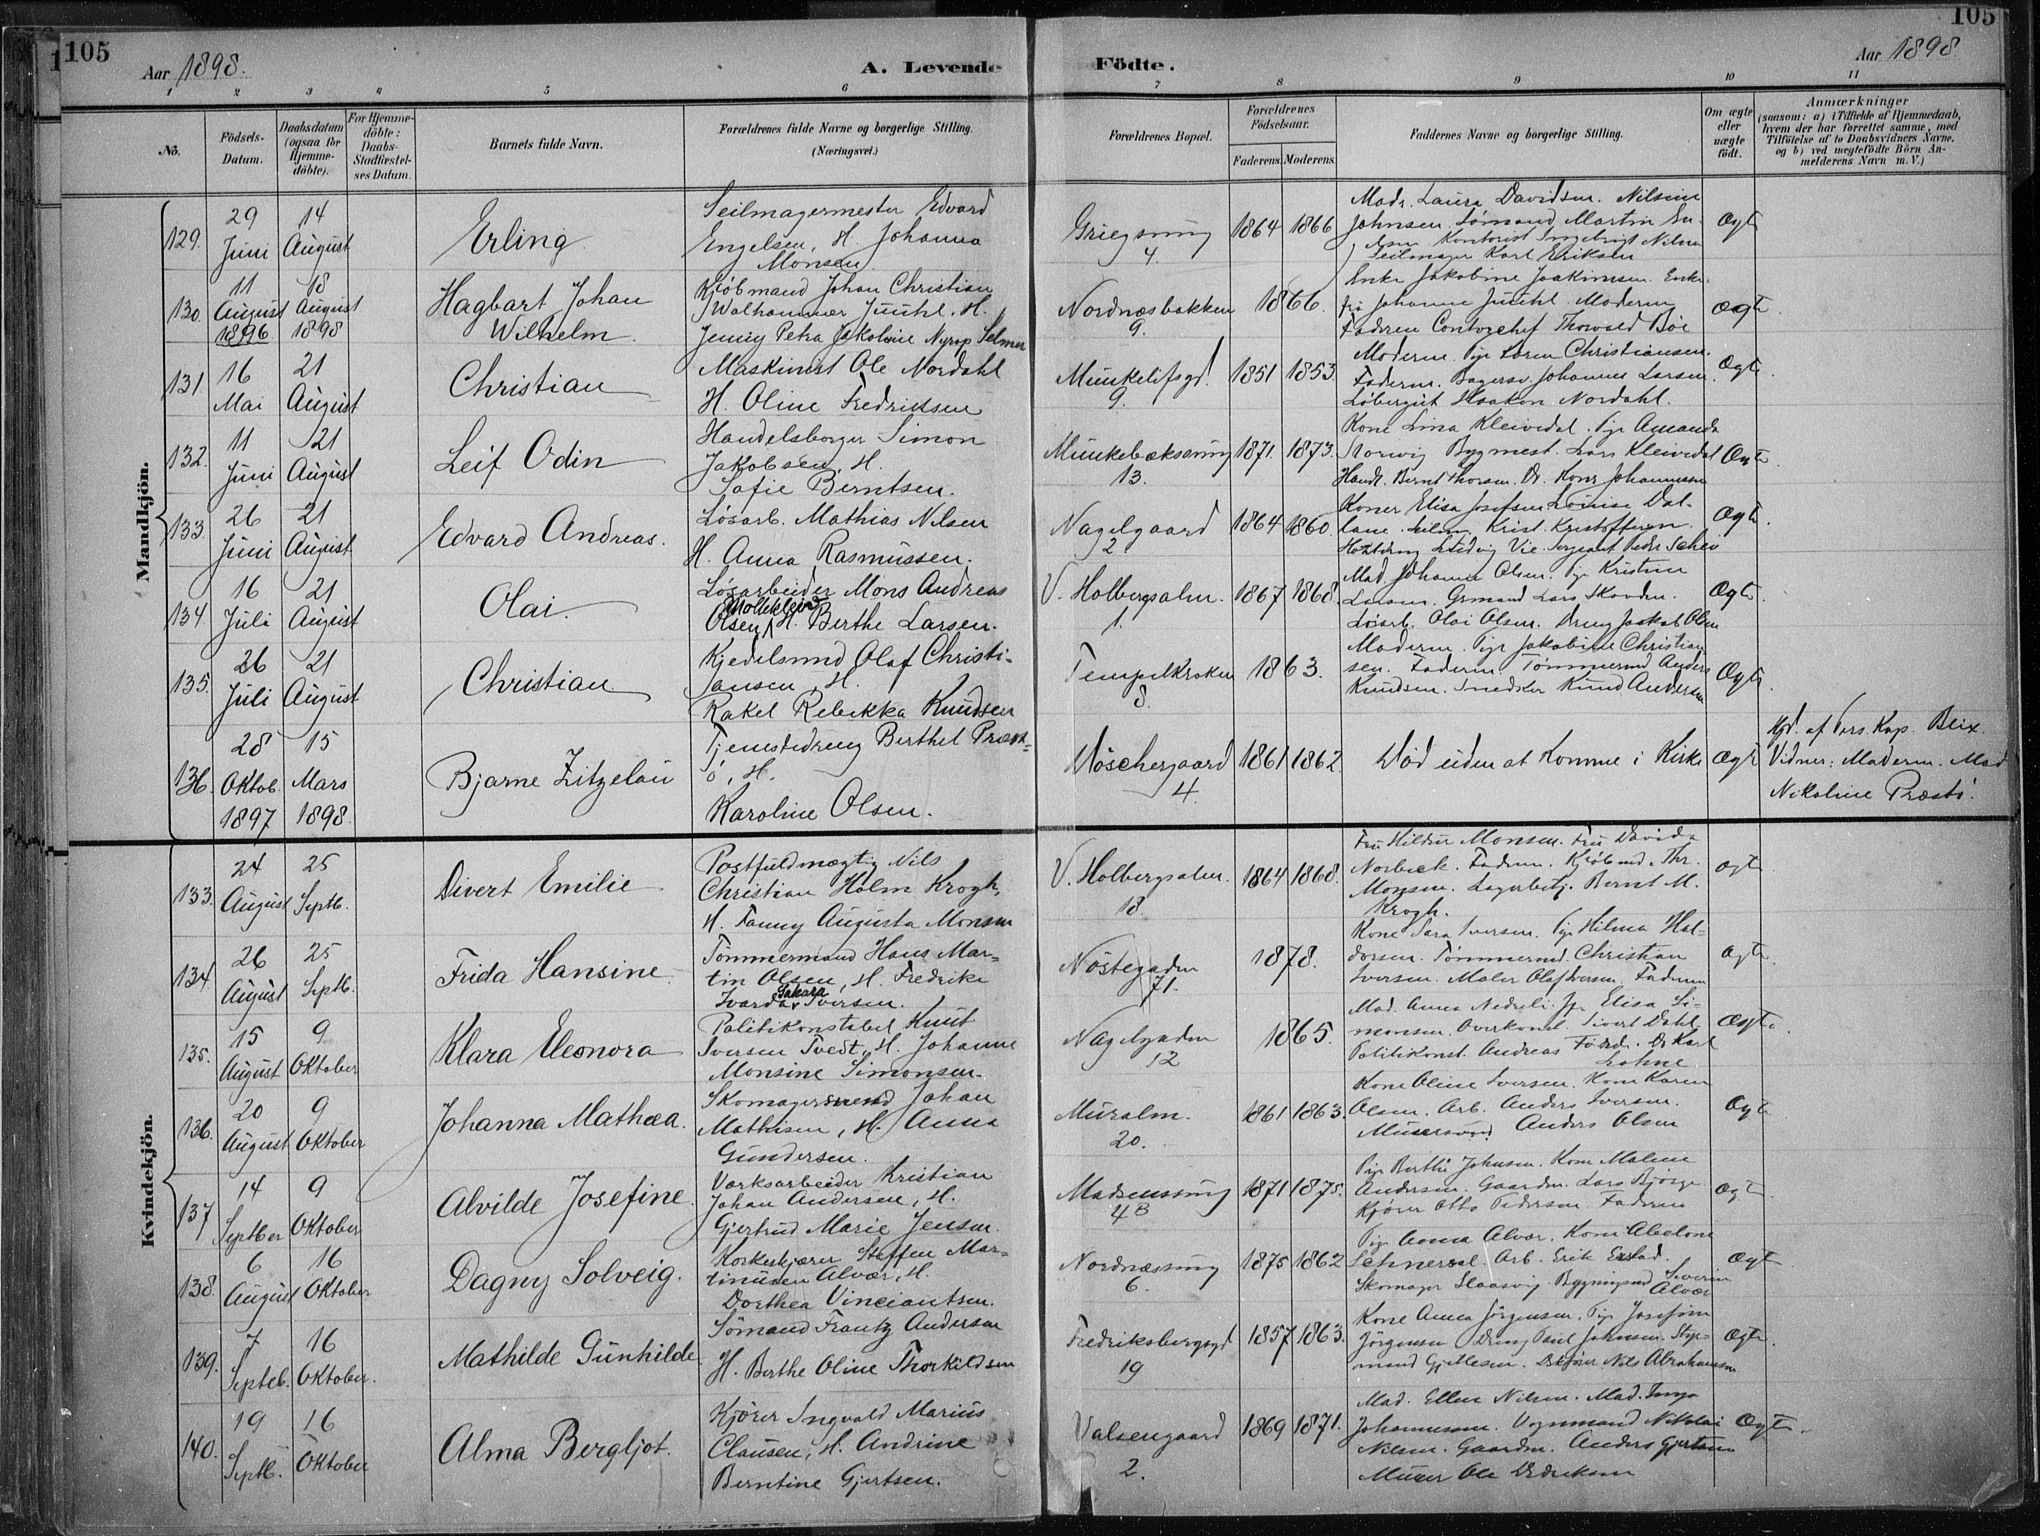 105
Aar 1898.
A. Levende Födte.
Aar 1898.
105
1 2 3 4 5 6 7 8 9 10 11
No.
Födsels-Datum.
Daabsdatum (ogsaa for Hjemme-döbte).
For Hjemme-döbte: Daabs-Stadfæstel-ses Datum.
Barnets fulde Navn.
Forældrenes fulde Navne og borgerlige Stilling. (Næringsvei.)
Forældrenes Bopæl.
Forældrenes Födselsaar.
Faderens. Moderens.
Faddernes Navne og borgerlige Stilling.
Om ægte eller uægte födt.
Anmærkninger (saasom: a) i Tilfælde af Hjemmedaab, hvem der har forrettet samme, med Tilföielse af to Daabsvidners Navne. og b) ved uægtefödte Börn An-melderens Navn m. V.)
Mandkjön.
129. 29 Juni 14 August
Erling
Seilmagermester Edvard
Engelsen, H. Johanna
Monsen
Griegsmug 4.
1864 1866
Madr. Laura Davidsen. Nilsine
Johnsen. Sømand Martin
Kontorist Ingebrigt Nilsen
Seilmager Karl Eriksen
Ægte
130. 11 August 1896 18 August 1898
Hagbart Johan
Wilhelm
Kjöbmand Johan Christian
Walhammer Juuhl, H.
Jenny Petra Jakobine Nyrop Selmer
Nordnæsbakken 9.
1866.
Enke Jakobine Joakimsen. Enke-
fru Johanne Juuhl. Moderen
Faderen Contorchef Thorvald Böe
ægte
131. 16 Mai 21 August
Christian
Maskinist Ole Nordahl
H. Oline Fredriksen
Munkelifsgd. 9.
1851 1853.
Moderen. Pige Loren Christiansen.
Faderen. Bagersv. Johannes Larsen
Løbergut Haakon Nordahl.
Ægte
132. 11 Juni 21 August
Leif Odin
Handelsborger Simon
Jakobsen, H.
Sofie Berntsen.
Munkebæksmug 13.
1871. 1873.
Kone Lina Kleivedal. Pige Amanda
Storvig Bygmest. Lars Kleivedal
Handl. Bernt Thorsen. Dr. Kons Johannessen
Ægte
133. 26 Juni 21 August
Edvard Andreas.
Løsarb. Mathias Nilsen
H. Anna Rasmussen.
Nagelgaard 2
1864 1860.
Koner Elisa Josefsen Lovise Dal-
lane. Krist. Kristoffersen.
Ludvig Vie. Sergeant Peder
Ægte
134. 16 Juli 21 August
Olai
Løsarbeider Mons Andreas
Olsen H. Berthe Larsen.
V. Holbergsalm. 1.
1867 1868.
Mad. Johanna Olsen. Pige Kristine
Larsen. Grmand Lars Skovden.
Løsarb. Olai Olsen. Dreng Jaakob Olsen
Ægte
135. 26 Juli 21 August
Christian
Kjedelsmed Olaf Christi-
ansen, H.
Rakel Rebekka Knudsen
Tempelkroken 8.
1863.
Moderen. Pige Jakobine Christian
sen. Faderen. Tømmermd Anders
Knudsen. Smedsv Knud Andersen
Ægte
136. 28 Oktob. 1897 15 Mars 1898.
Bjarne Zitzelau
Tjenestedreng Berthel Præst-
ö, H.
Karoline Olsen.
Wöschergaard 4.
1861 1862.
Død uden at komme i Kirke
Ægte
Hjd. af Pers. Kap. Blix.
Vidner: Moderen. Mad
Nikoline Præstö.
Kvindekjön.
133. 24 August 25 Septb.
Divert Emilie
Postfuldmægtig Nils
Christian Holm Krogh,
H. Fanny Augusta Monsen
V. Holbergsalm. 18.
1864 1868.
Fru Hildur Monsen. Fru Davida
Norbeck. Faderen. Kjöbmd. Thr.
Monsen. Lagerbetj. Bernt M.
Krogh.
ægte
134. 26 August 25 Septb.
Frida Hansine
Tömmermand Hans Mar-
tin Olsen, H. Fredrike
Ivarda Sakara Iversen.
Nöstegaden 71.
1878.
Kone Sara Iversen. Pige Hilma Hal-
dorsen. Tömmermd. Christian
Iversen. Maler Olaf Iversen. Faderen
ægte
135. 15 August 9 Oktober
Klara Eleonora
Politikonstabel Knut
Iversen Tvedt, H. Johanne
Monsine Simonsen.
Nagelgaden 12
1865.
Mad. Anna Nedreli. Elisa Si-
monsen. Overkonst. Sivert Dahl
Politikonst. Andreas Dr Karl
Lohne
Ægte
136. 20 August 9 Oktober
Johanna Mathæa.
Skomagersvend Johan
Mathisen, H. Anna
Gundersen.
Muralm. 20.
1861 1863.
Kone Oline Iversen. Kone Karen
Olsen. Arb. Anders Iversen.
Murersvend Anders Olsen
Ægte
137 14 Septber 9 Oktober
Alvilde Josefine
Værksarbeider Kristian
Johan Andersen, H.
Gjertrud Marie Jensen.
Madsensmug 4B
1871 1875.
Pige Berthe Johnsen. Kone Malene
Andersen. Gaardm. Lars Bjørge
Kjører Otto Pedersen Faderen
ægte
138. 6 August 16 Oktober
Dagny Solveig.
Korkeskjærer Steffen Mar-
tinusen Alvær, H.
Dorthea Vinciantsen.
Nordnæsmug 6.
1875 1862
Pige Anna Alvær. Kone Abelone
Arb. Erik
Skomager Bygningssnd Severin
Alvær
Ægte
139. 7 Septeb. 16 Oktober.
Mathilde Gunhilde
Sömand Frantz Andersen
H. Berthe Oline Thorkildsen
Fredriksbergsgd 19
1857 1863.
Kone Anna Jörgensen. Pige Josefine
Jörgensen Dreng Paul Johnsen. Styr-
mand Nils Abrahamsen
Ægte
140. 19 Septb. 16 Oktober
Alma Bergljot.
Kjører Ingvald Marius
Clausen, H. Andrine
Berntine Gjertsen.
Valsengaard 2.
1869 1871.
Mad. Ellen Nilsen. Mad. Inga
Johannessen. Vognmand Nikolai
Nilsen. Gaardm. Anders Gjertsen
Murer Ole Dedriksen
Ægte